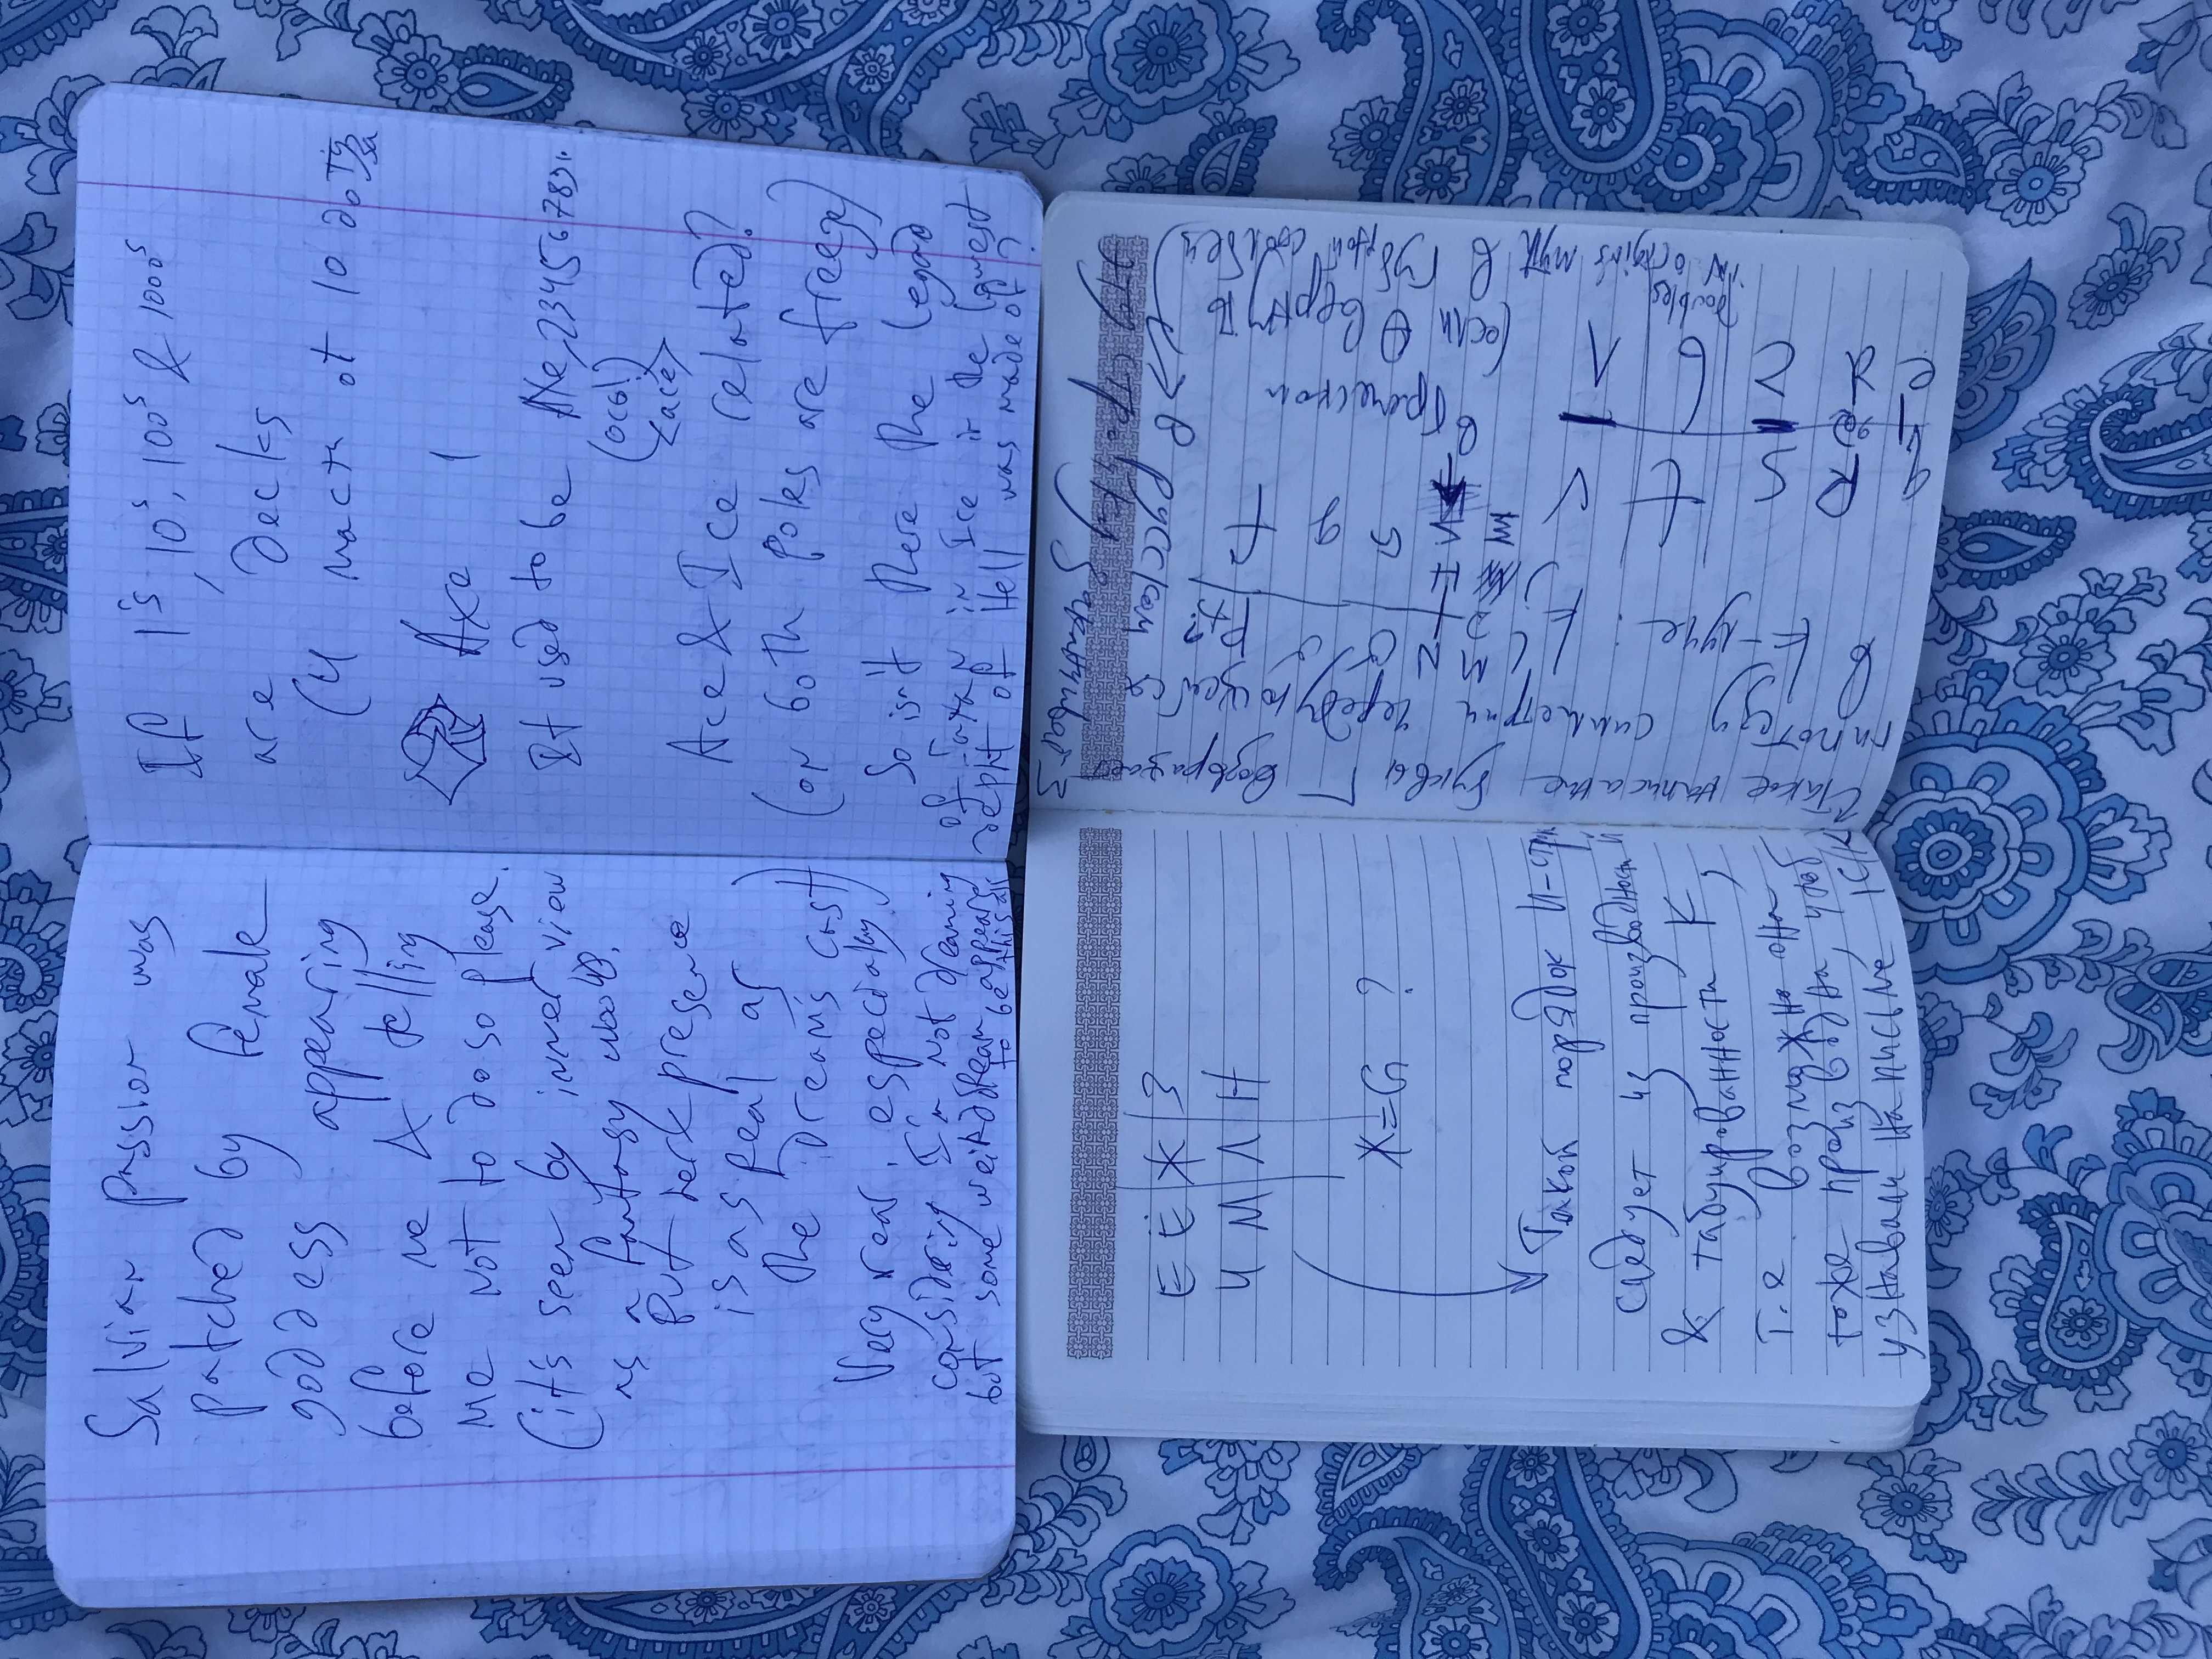 Salvian passion was
patched by female
goddess appearing
before me & telling
me not to do so please.
(it's seen by inner view
as a fantasy would,
But her presence
is as real as
the dream's cast)
Very real, especially
considering I'm not dreaming
but some weird dream appears
to be this all
If 1s, 10s, 100s & 1000s
are decks
(4 масти от 10 до Туза
Axe 1
It used to be Axe, 2345678910
(оса!)
<ace>
Ace & Ice related?
(or both poles are freeze)
So isn't there the legad
of in Ice in the lowest
depht of Hell was made of?
Е Ё Ж З
И М Л Н
Ж=G ?
Такой порядок И-строки
следует из производности Й
& табуированности К,
т.е возможно она
тоже производна, чтоб
узнавали на письме
Такое написание буквы Г возвращает
гипотезу симметрии чередующейся
в К-луче: K L M N O
Pt?
H
S G g f
q R S t v
e d 2 6 Λ
Doubles
in origins
в греческом
(если Θ вернуть
в губной столбец)
Эту структуру
в русском